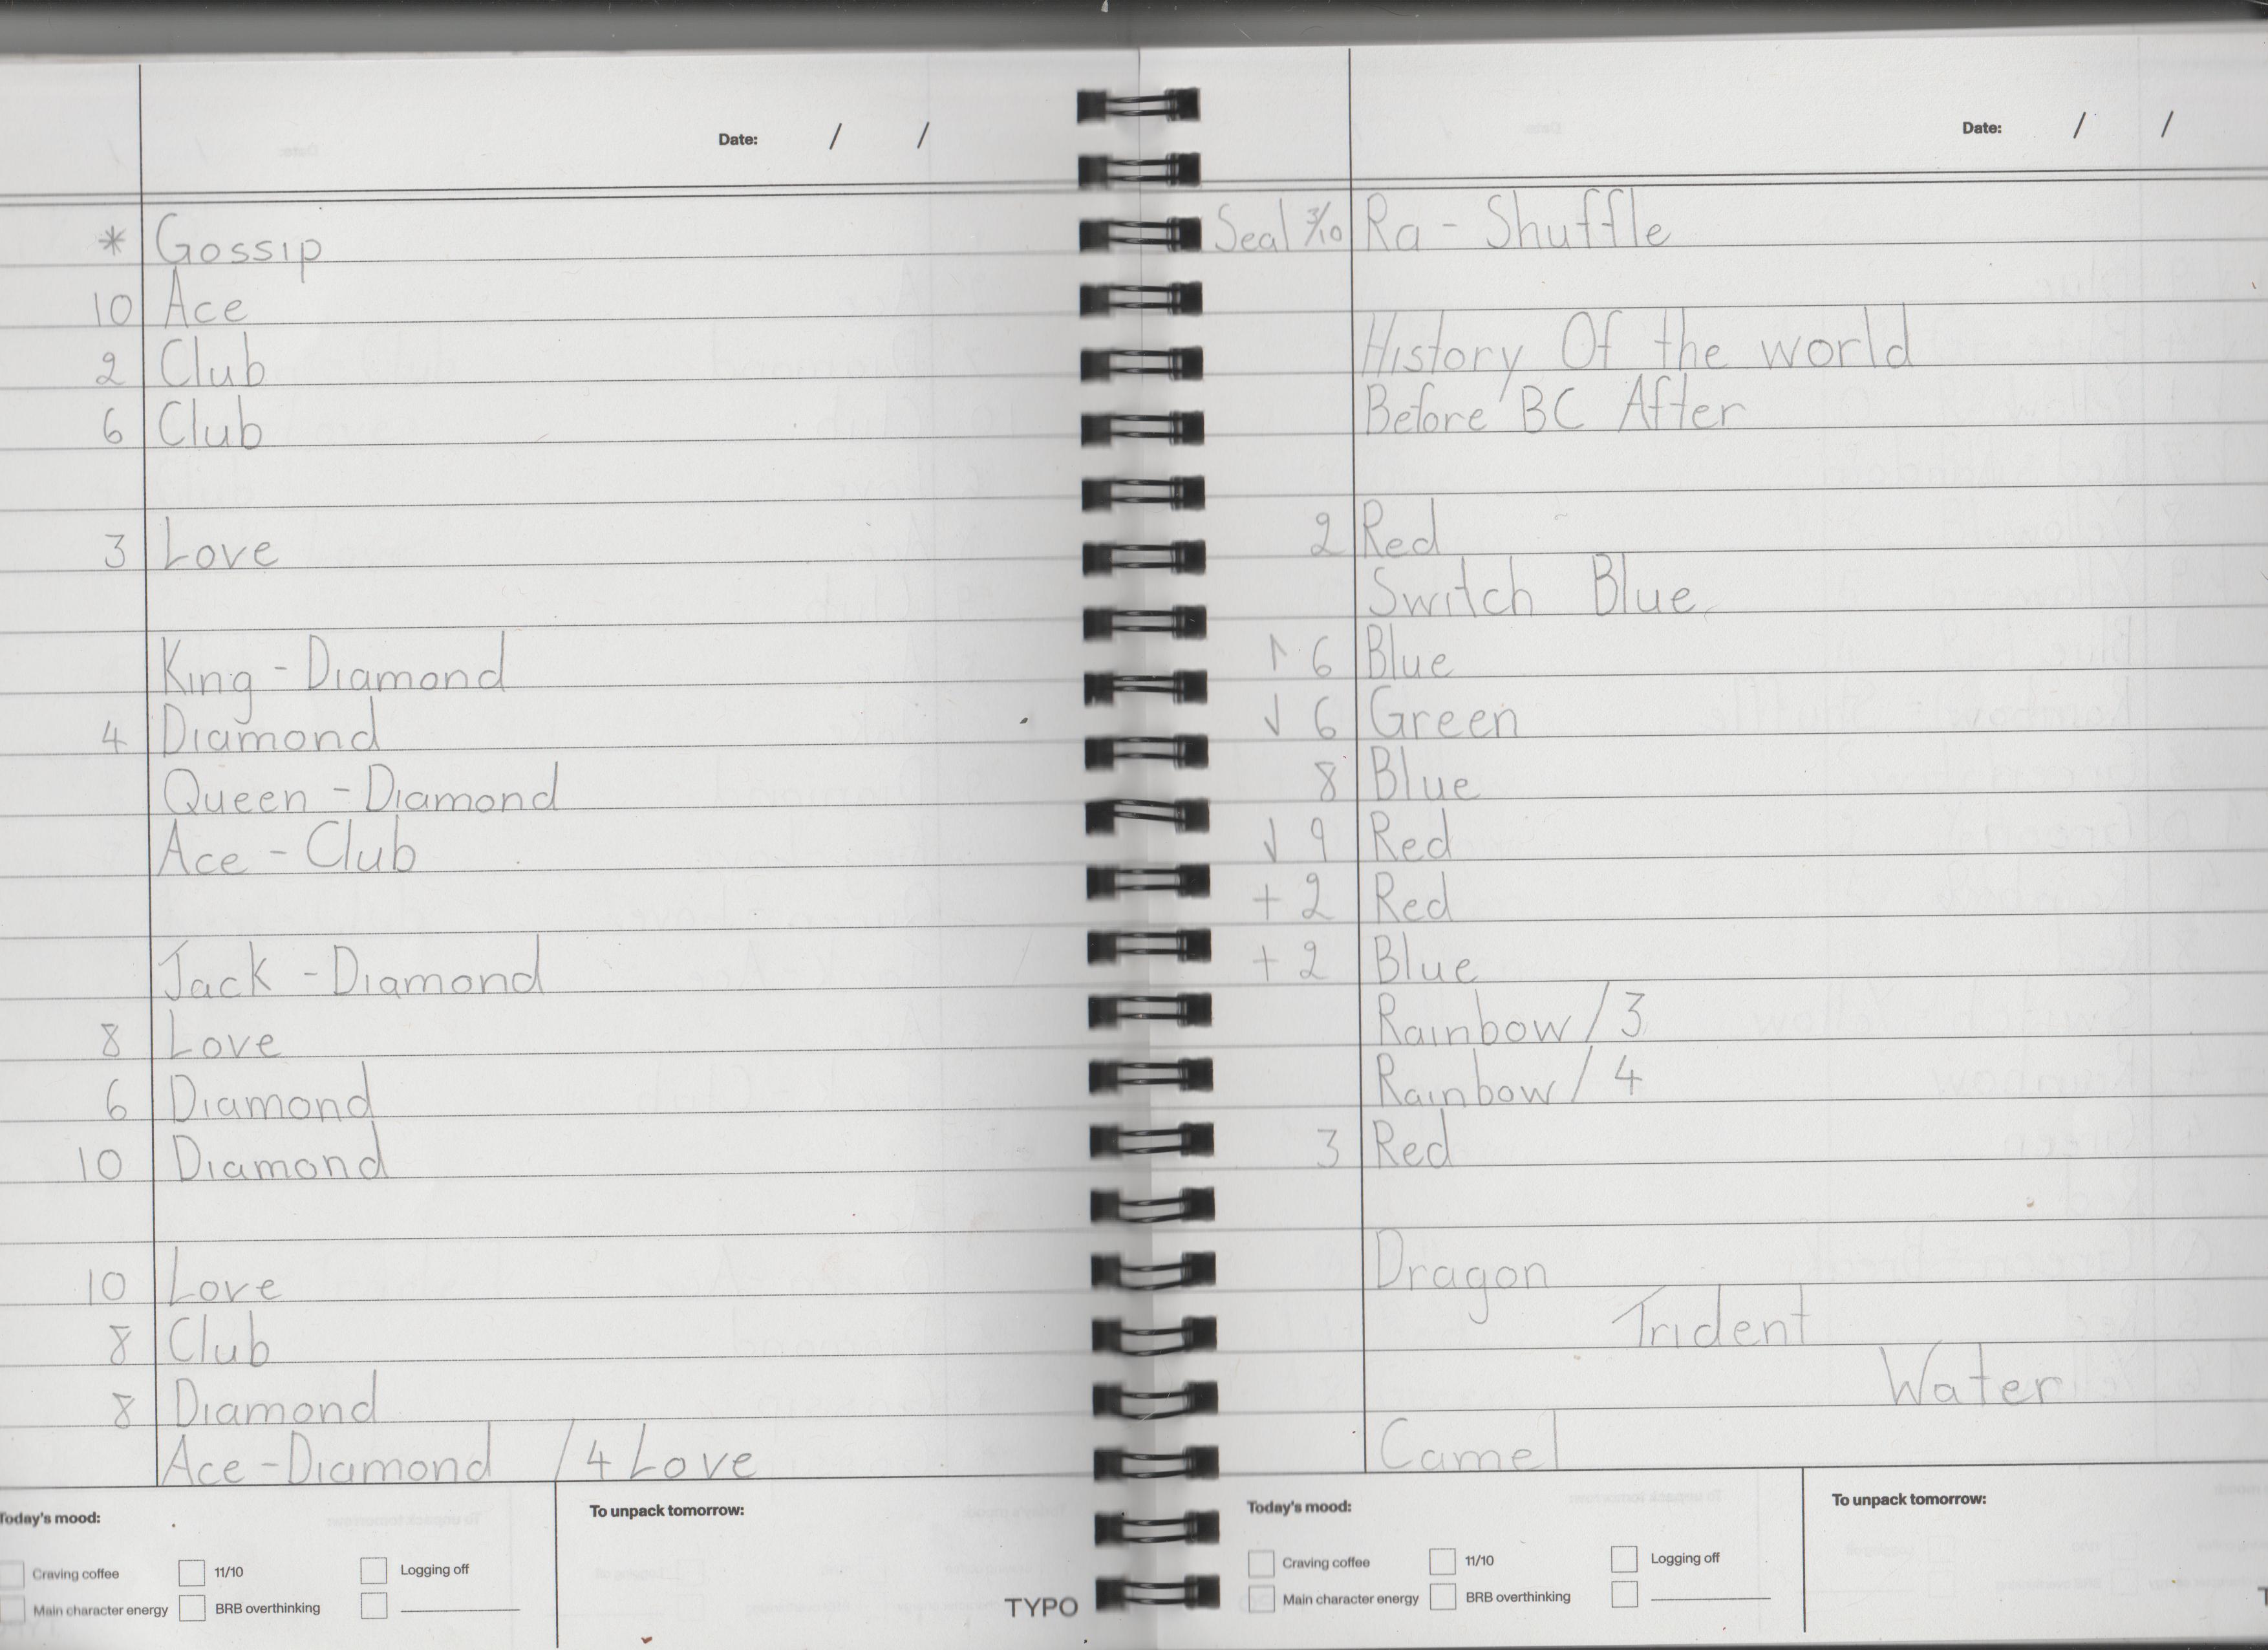 Date: / /
* Gossip
10 Ace
2 Club
6 Club
3 Love
King - Diamond
4 Diamond
Queen - Diamond
Ace - Club
Jack - Diamond
8 Love
6 Diamond
10 Diamond
10 Love
8 Club
8 Diamond
Ace - Diamond / 4 Love
Today's mood:
To unpack tomorrow:
Craving coffee
11/10
Logging off
Main character energy
BRB overthinking
TYPO
Date: / /
Seal 3/10 Ra - Shuffle
History Of the world
Before BC After
2 Red
Switch Blue
↑ 6 Blue
↓ 6 Green
8 Blue
↓ 9 Red
+ 2 Red
+ 2 Blue
Rainbow / 3
Rainbow / 4
3 Red
Dragon
Trident
Water
Camel
Today's mood:
To unpack tomorrow:
Craving coffee
11/10
Logging off
Main character energy
BRB overthinking